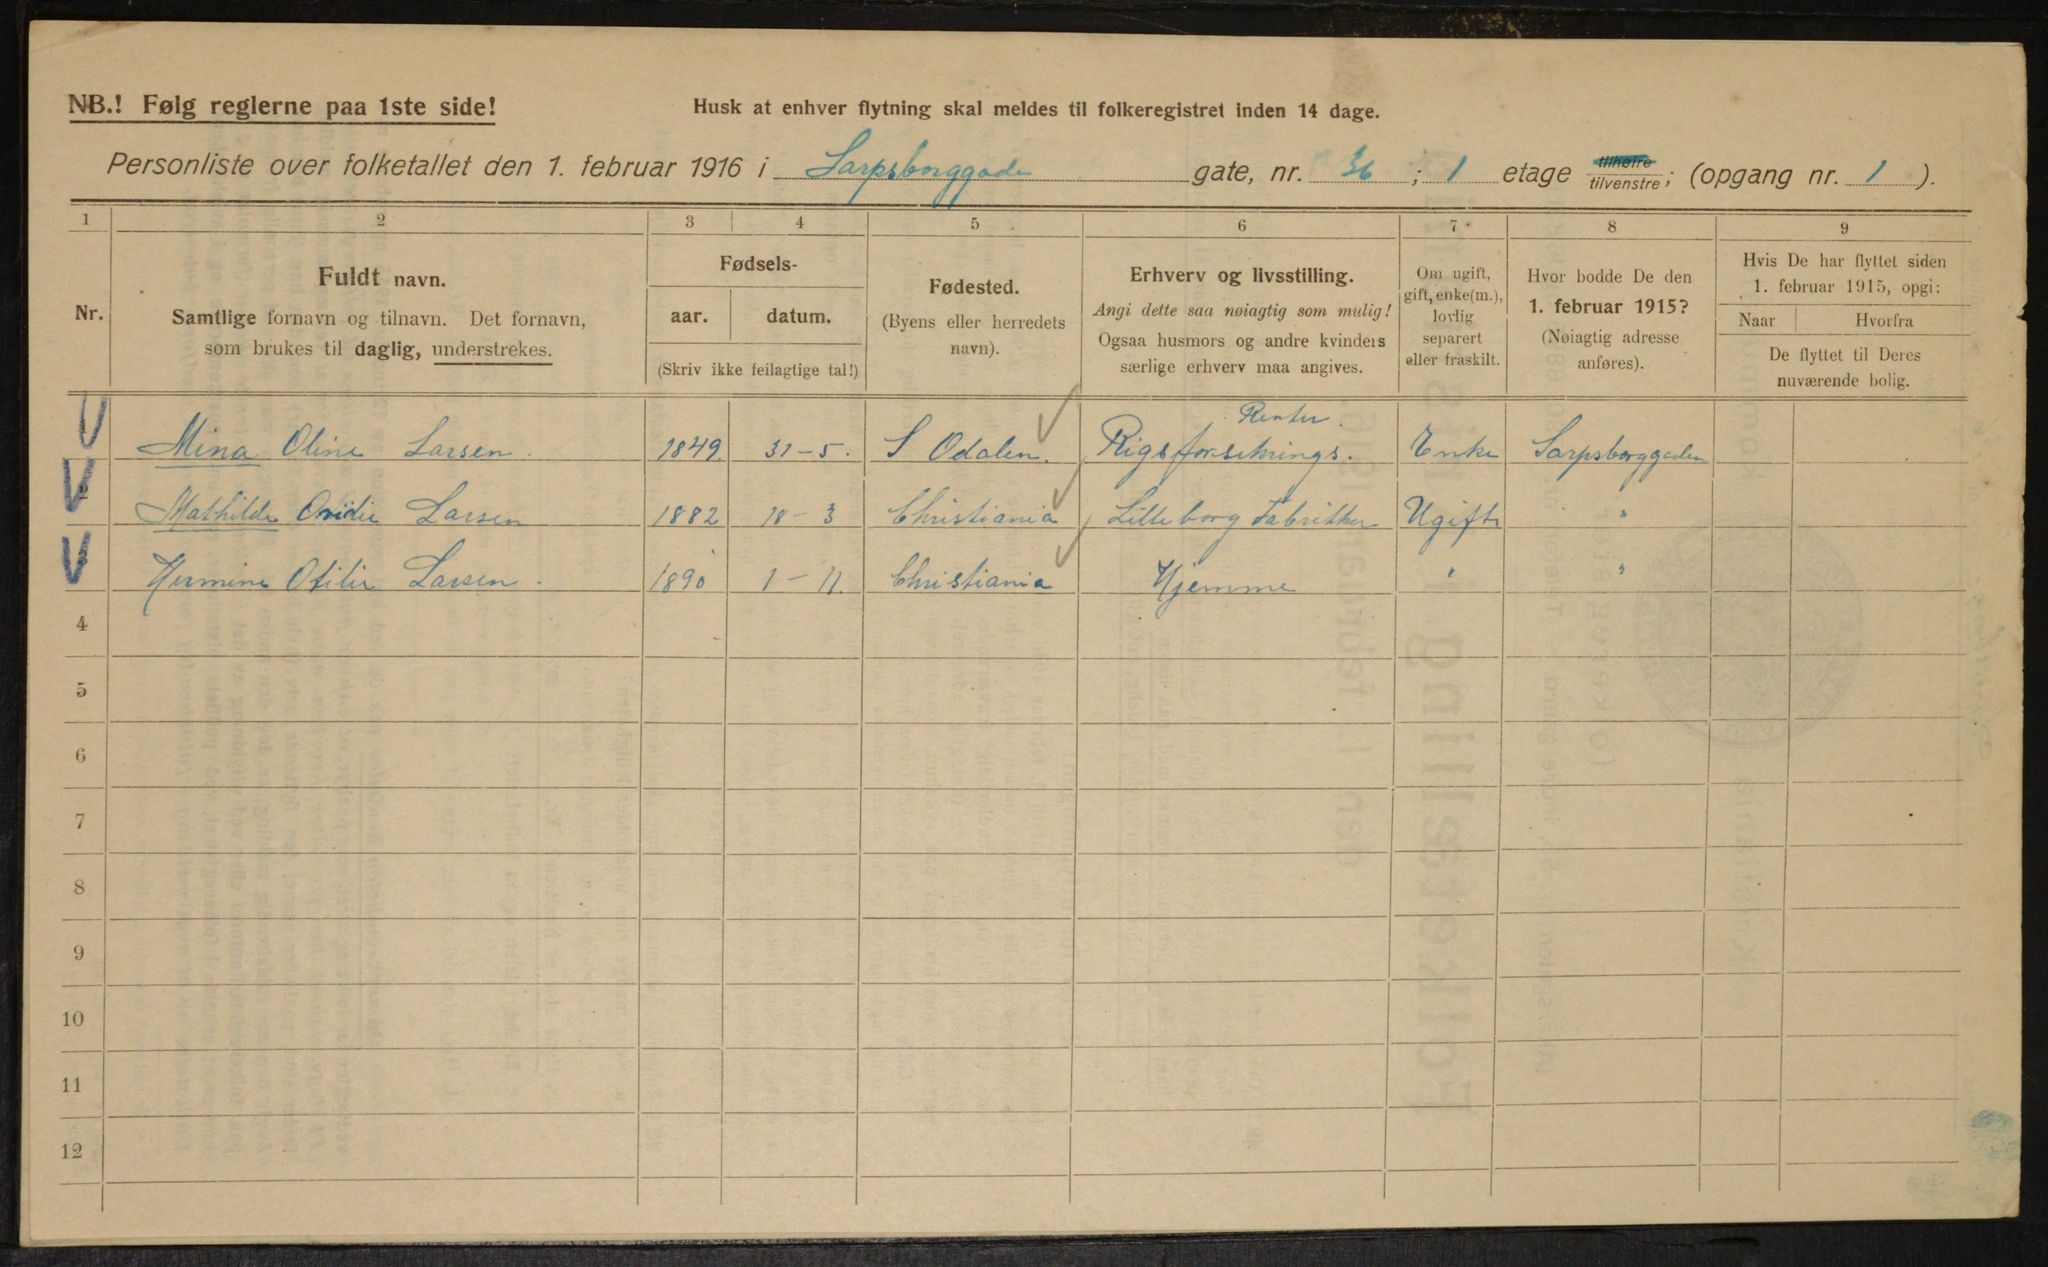 NB.! Følg reglerne paa 1ste side!
Husk at enhver flytning skal meldes til folkeregistret inden 14 dage.
Personliste over folketallet den 1. februar 1916 i Sarpsborggade gate, nr. 36 ; 1 etage tilhøire tilvenstre; (opgang nr. 1 ).
1 2 3 4 5 6 7 8 9
Nr.
Fuldt navn.
Samtlige fornavn og tilnavn. Det fornavn,
som brukes til daglig, understrekes.
Fødsels-
aar. datum.
(Skriv ikke feilagtige tal!)
Fødested.
(Byens eller herredets
navn).
Erhverv og livsstilling.
Angi dette saa nøiagtig som mulig!
Ogsaa husmors og andre kvinders
særlige erhverv maa angives.
Om ugift,
gift, enke(m.),
lovlig
separert
eller fraskilt.
Hvor bodde De den
1. februar 1915?
(Nøiagtig adresse
anføres).
Hvis De har flyttet siden
1. februar 1915, opgi:
Naar Hvorfra
De flyttet til Deres
nuværende bolig.
Renter.
Mina Oline Larsen. 1849. 31-5. S Odalen. Rigsforsikrings. Enke Sarpsborggaden
2 Mathilde Ovidie Larsen 1882 18-3 Christiania Lilleborg Fabrikker Ugift "
3 Hermine Otilie Larsen. 1890 1-11. Christiania Hjemme " "
4
5
6
7
8
9
10
11
12